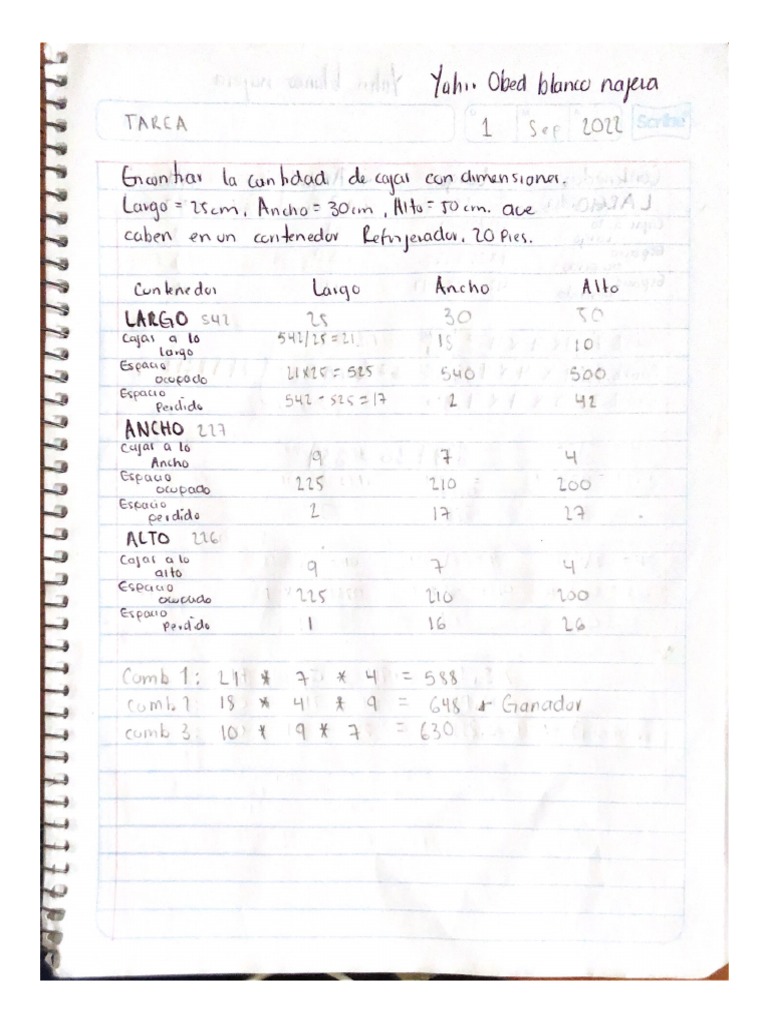 Yahir Obed blanco najera
TAREA 1 Sep 2022 Scribe
Encontrar la cantidad de cajas con dimensiones.
Largo = 25cm, Ancho = 30cm, Alto = 50cm. que
caben en un contenedor Refrijerador. 20 Pies.
Contenedor Largo Ancho Alto
LARGO 542 25 30 50
Cajas a lo largo 542/25=21. 18 10
Espacio ocupado 21x25=525 540 500
Espacio Perdido 542-525=17 2 42
ANCHO 227
Cajas a lo Ancho 9 7 4
Espacio ocupado 225 210 200
Espacio perdido 2 17 27
ALTO 226
Cajas a lo alto 9 7 4
Espacio ocupado 225 210 200
Espacio Perdido 1 16 26
Comb 1: 21 * 7 * 4 = 588
comb. 2 18 * 4 * 9 = 648 * Ganador
comb 3: 10 * 9 * 7 = 630